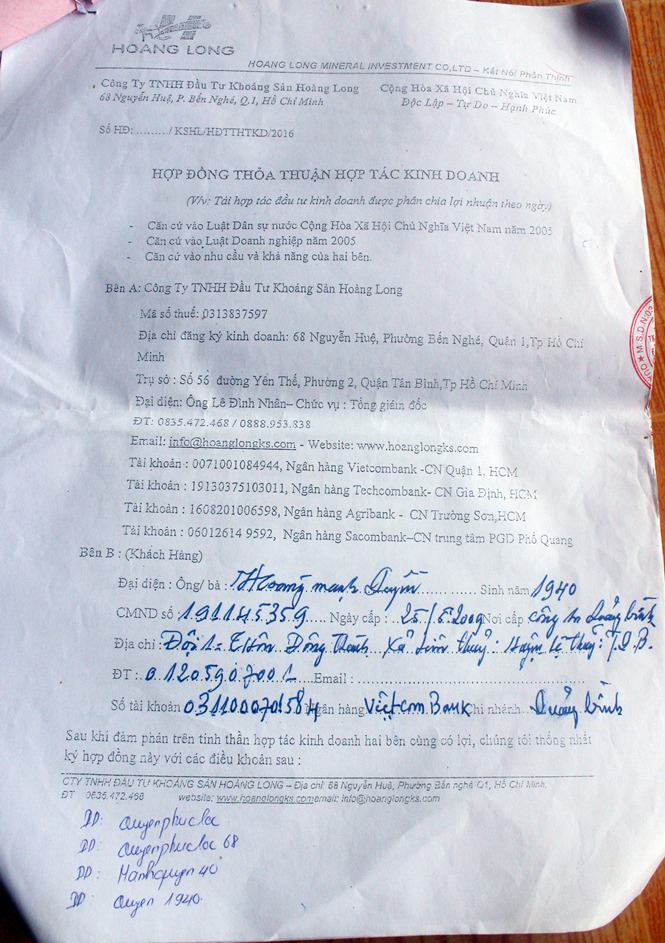 HOANG LONG
HOANG LONG MINERAL INVESTMENT CO,LTD – Kết Nối Phồn Thịnh
Công Ty TNHH Đầu Tư Khoáng Sản Hoàng Long
Cộng Hòa Xã Hội Chủ Nghĩa Việt Nam
68 Nguyễn Huệ, P. Bến Nghé, Q.1, Hồ Chí Minh
Độc Lập – Tự Do – Hạnh Phúc
Số HĐ: ........./ KSHL/HĐTTHTKD/2016
HỢP ĐỒNG THỎA THUẬN HỢP TÁC KINH DOANH
(V/v: Tái hợp tác đầu tư kinh doanh được phân chia lợi nhuận theo ngày)
- Căn cứ vào Luật Dân sự nước Cộng Hòa Xã Hội Chủ Nghĩa Việt Nam năm 2005
- Căn cứ vào Luật Doanh nghiệp năm 2005
- Căn cứ vào nhu cầu và khả năng của hai bên.
Bên A: Công Ty TNHH Đầu Tư Khoáng Sản Hoàng Long
Mã số thuế: 0313837597
Địa chỉ đăng ký kinh doanh: 68 Nguyễn Huệ, Phường Bến Nghé, Quận 1,Tp Hồ Chí
Minh
Trụ sở : Số 56 đường Yên Thế, Phường 2, Quận Tân Bình,Tp Hồ Chí Minh
Đại diện: Ông Lê Đình Nhân– Chức vụ : Tổng giám đốc
ĐT: 0835.472.468 / 0888.953.838
Email: info@hoanglongks.com - Website: www.hoanglongks.com
Tài khoản : 0071001084944, Ngân hàng Vietcombank -CN Quận 1, HCM
Tài khoản : 19130375103011, Ngân hàng Techcombank- CN Gia Định, HCM
Tài khoản : 1608201006598, Ngân hàng Agribank - CN Trường Sơn,HCM
Tài khoản : 06012614 9592, Ngân hàng Sacombank–CN trung tâm PGD Phố Quang
Bên B : (Khách Hàng)
Đại diện : Ông/ bà : Hoàng mạnh Quyền Sinh năm 1940
CMND số : 191145359 Ngày cấp : 25/5.2009 Nơi cấp công an Quảng bình
Địa chỉ : Đội 1 - Thôn Đông Thành Xã Liên thuỷ : Huyện Lệ Thuỷ : T.Q.B.
ĐT : 01205907001 Email :
Số tài khoản 0311000701584 Ngân hàng VietcomBank Chi nhánh Quảng bình
Sau khi đàm phán trên tinh thần hợp tác kinh doanh hai bên cùng có lợi, chúng tôi thống nhất
ký hợp đồng này với các điều khoản sau :
CTY TNHH ĐẦU TƯ KHOÁNG SẢN HOÀNG LONG – Địa chỉ: 68 Nguyễn Huệ, Phường Bến Nghé Q1, Hồ Chí Minh.
ĐT 0835.472.468 website: www.hoanglongks.com email: info@hoanglongks.com
DD: Quyenphucloc
DD: Quyenphucloc 68
DD: Manhquyen 40
DD: Quyen 1940